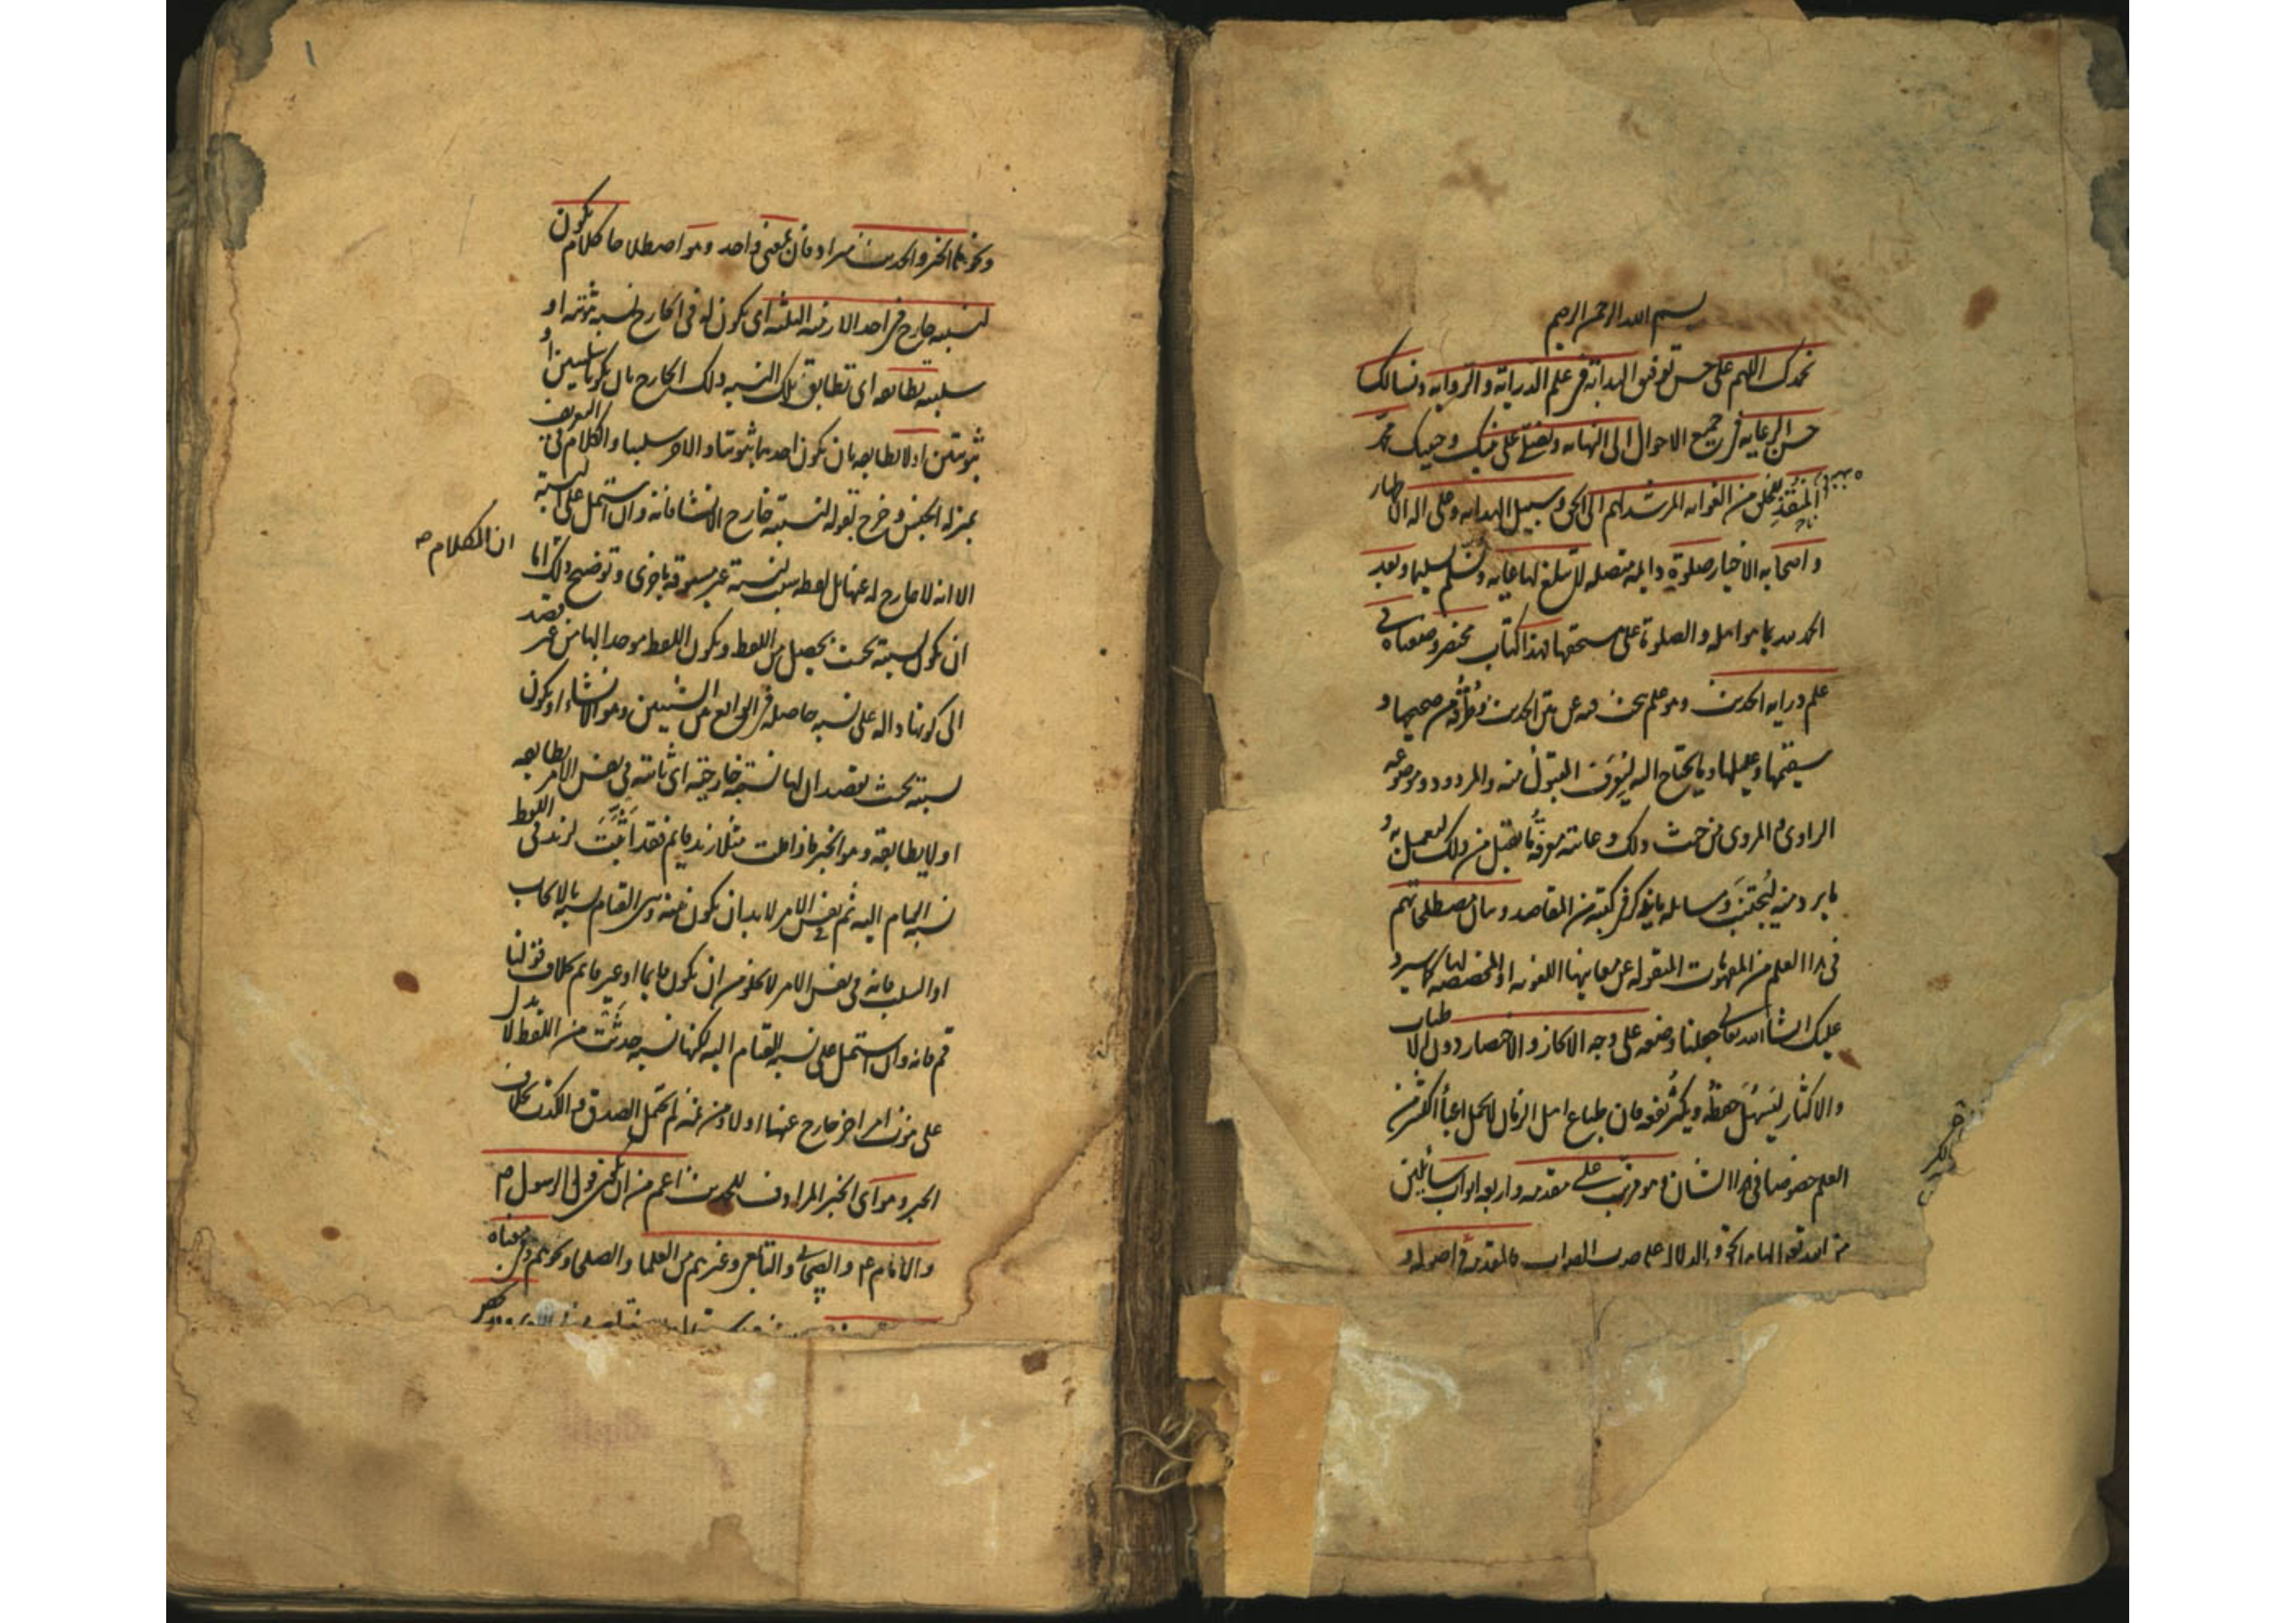 بسم الله الرحمن الرحيم
نحمدك اللهم على حسن توفيق البداية في علم الدراية والرواية ونسالك
حسن الرعاية في جميع الاحوال الى النهاية ونصلي على نبيك وحبيبك محمد
المنقذ للخلق من الغوايه المرشد لهم الى الحق وسبيل الهدايه وعلى اله الاطهار
واصحابه الاخيار صلوة دايمه متصله لا تبلغ لها غايه ونسلم تسليما وبعد
الحمد لله بما هو اهله والصلوة على مستحقها فهذا كتاب مختصر وضعناه في
علم دراية الحديث وهو علم يبحث فيه عن متن الحديث وطرقه من صحيحها و
سقيمها وعليلها وما يحتاج اليه ليعرف المقبول منه والمردود وموضوعه
الراوي والمروي من حيث ذلك وغايته معرفة ما يقبل من ذلك ليعمل به و
ما يرد منه ليجتنب ومسائله ما يذكر في كتبه من المقاصد وبيان مصطلحاتهم
في هذا العلم من المفهومات المنقوله عن معانيها اللغويه او المخصصه لها كما سيرد
عليك ان شاء الله تعالى جعلنا وضعه على وجه الايجاز والاختصار دون الاطناب
والاكثار ليسهل حفظه ويكثر نفعه فان طباع اهل الزمان لا تحمل اعبأ اكثر من
العلم خصوصا في هذا الشان وهو مرتب على مقدمه واربعه ابواب سائلين
من الله تعه الهام الحق والدلالة على صوب الصواب فالمقدمة في اصوله و
ونحو هما الخبر والحديث مترادفان بمعنى واحد وهو اصطلاحا كلام يكون
لنسبته خارج في احد الازمنه الثلثه اى يكون له في الخارج نسبه ثبوتيه او
سلبيه تطابقه اى تطابق تلك النسبه ذلك الخارج بان يكونا سلبيين او
ثبوتيين او لا تطابقه بان يكون احدهما ثبوتيا والاخر سلبيا والكلام في التعريف
بمنزله الجنس وخرج بقوله لنسبته خارج الانشا فانه وان اشتمل على النسبة
الا انه لا خارج له عنها بل لفظه سبب لنسبة غير مسبوقه باخرى وتوضيح ذلك
ان الكلام اما
ان يكون نسبته بحيث تحصل من اللفظ ويكون اللفظ موجدا لها من غير قصد
الى كونها داله على نسبه حاصله في الواقع بين الشيئين وهو الانشاء او يكون
نسبته بحيث يقصد ان لها نسبة خارجية اى ثابتة في نفس الامر تطابقه
او لا يطابقه وهو الخبر فاذا قلت مثلا زيد قايم فقد اثبت لزيد في اللفظ
نسبه القيام اليه ثم نفس الامر لا بد ان يكون بينه وبين القيام نسبه بالايجاب
او السلب فانه في نفس الامر لا يخلو من ان يكون قايما او غير قايم بخلاف قولنا
قم فانه وان اشتمل على نسبه القيام اليه لكنها نسبه حدثت من اللفظ لا يدل
على ثبوت امر اخر خارج عنها او لا ومن ثمه لم يحتمل الصدق والكذب بخلاف
الخبر وهو اى الخبر المرادف للحديث اعم من ان يكون قول الرسول ص
والامام ع والصحابي والتابعي وغيرهم من العلما والصلحا ونحوهم وفي معناه